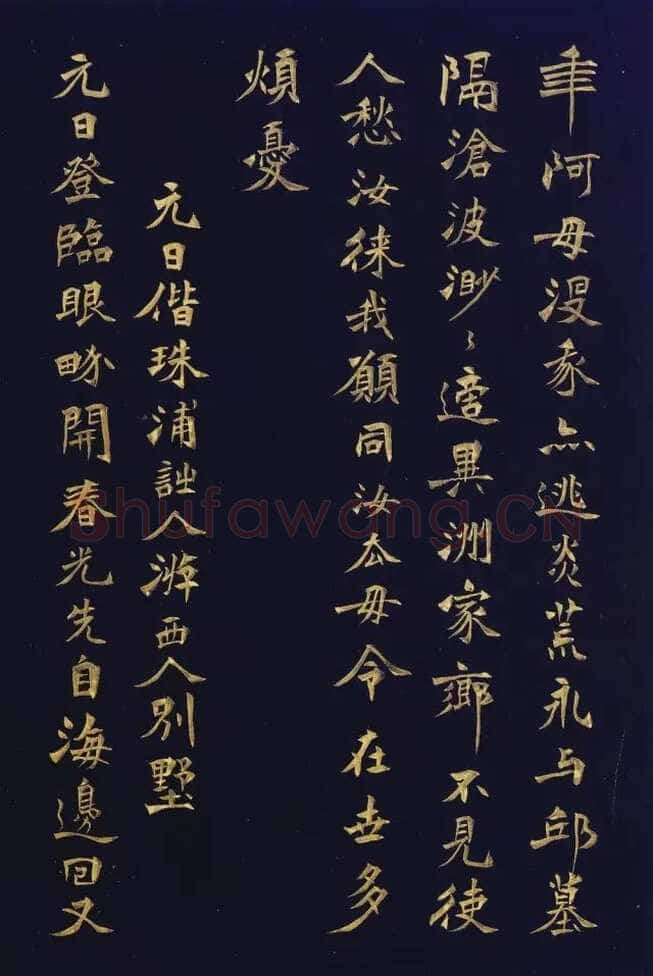 年阿母沒亦逃炎荒永与邱墓
隔滄波渺〻適異洲家鄉不見使
人愁汝徠我願同汝去毋令在世多
煩憂
元日偕珠浦詘人游西人別墅
元日登臨眼畍開春光先自海邊回又
Shufawang.CN